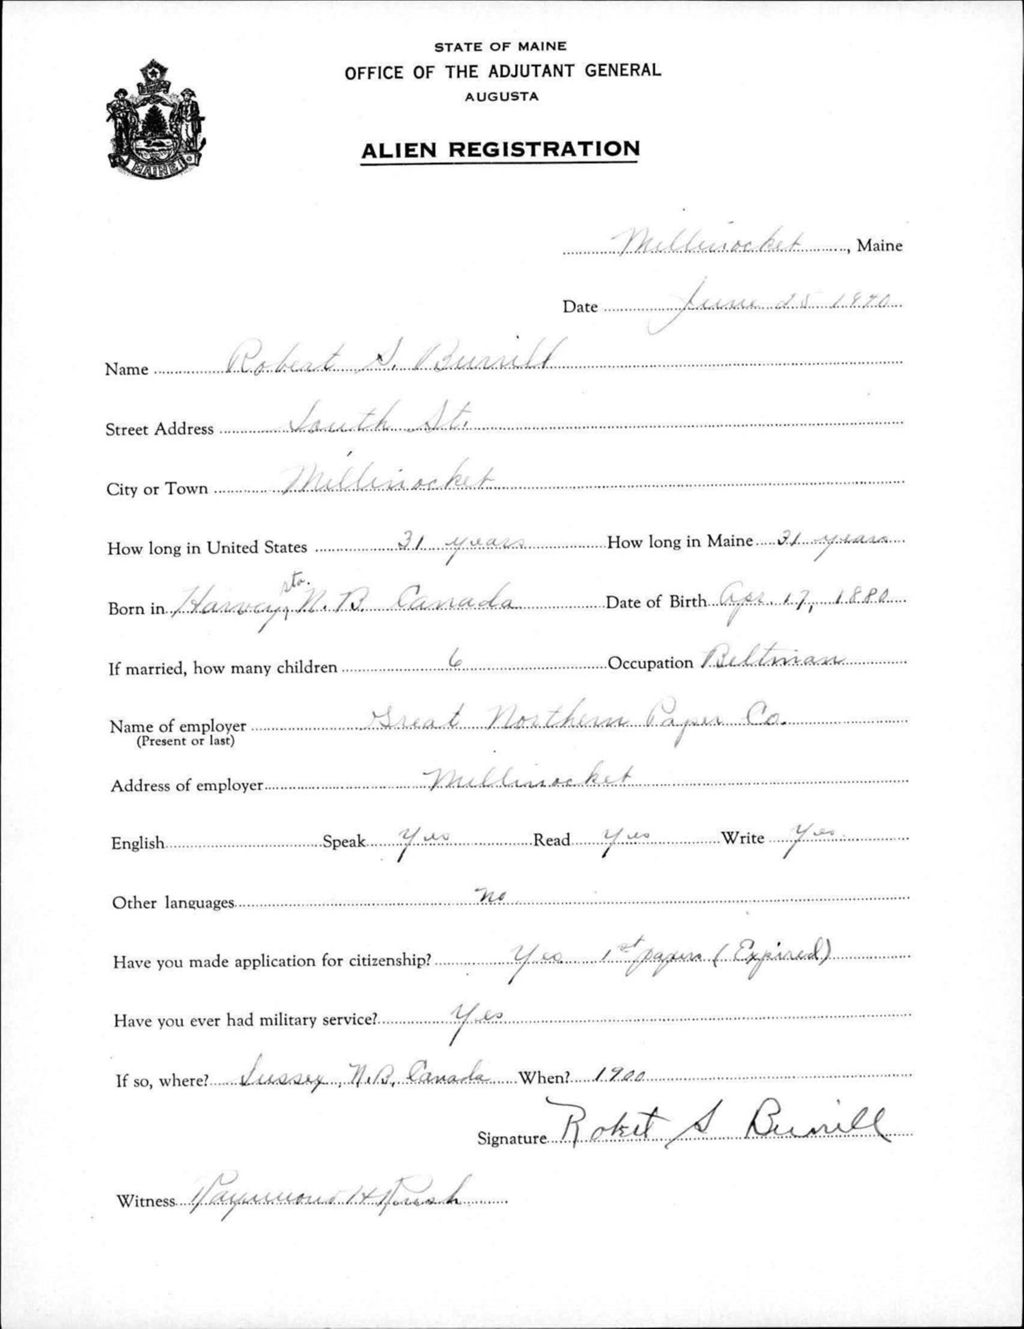 STATE OF MAINE
OFFICE OF THE ADJUTANT GENERAL
AUGUSTA
ALIEN REGISTRATION
MAINE
Millinocket, Maine
Date June 25 1940
Name Robert S. Burrill
Street Address South St.
City or Town Millinocket
How long in United States 31 years How long in Maine 31 years
Born in Harvey sta. N. B. Canada Date of Birth Apr. 17, 1880
If married, how many children 6 Occupation Beltman
Name of employer Great Northern Paper Co.
(Present or last)
Address of employer Millinocket
English Speak Yes Read Yes Write Yes
Other languages no
Have you made application for citizenship? Yes 1st papers (Expired)
Have you ever had military service? Yes
If so, where? Sussex, N.B. Canada When? 1900
Signature Robert S Burrill
Witness Raymond H Rush